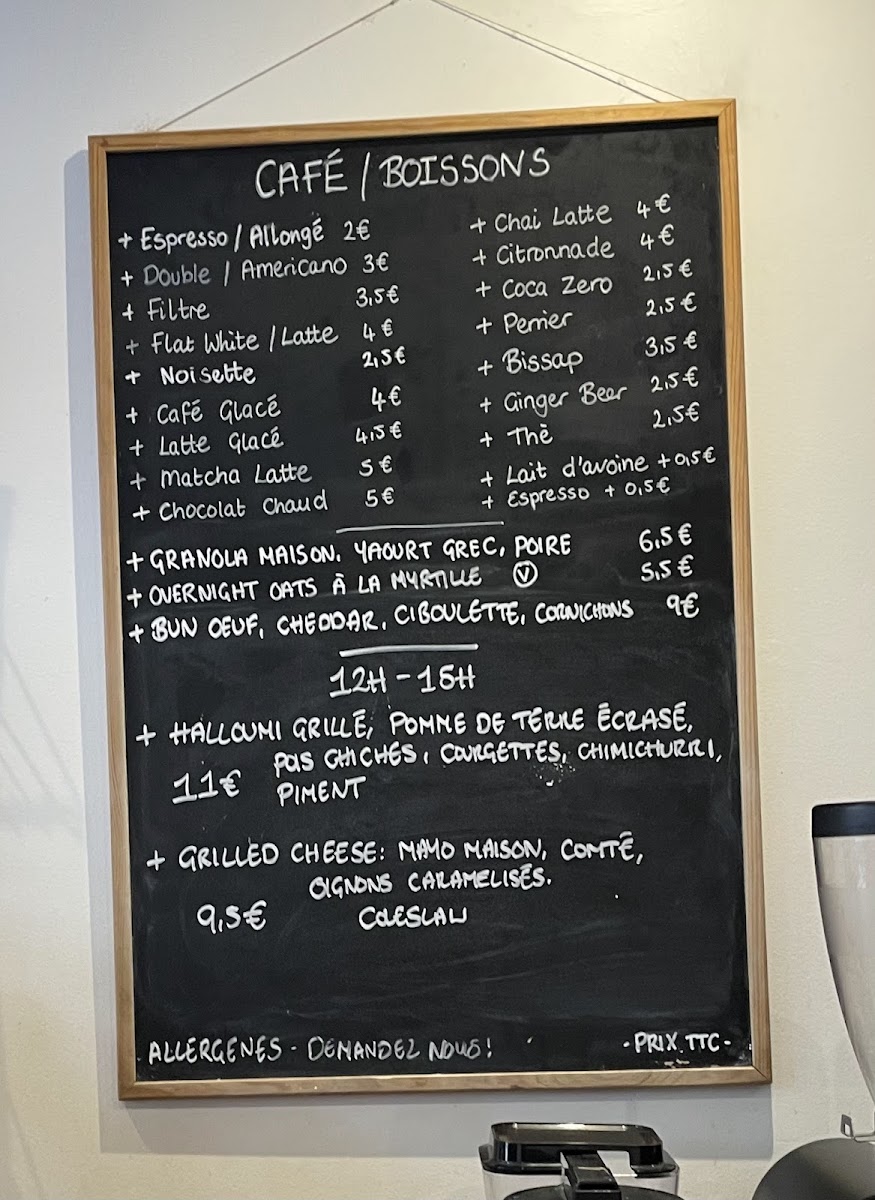 CAFÉ / BOISSONS
+ Espresso / Allongé 2€
+ Double / Americano 3€
+ Filtre 3,5€
+ Flat White / Latte 4€
+ Noisette 2,5€
+ Café Glacé 4€
+ Latte Glacé 4,5€
+ Matcha Latte 5€
+ Chocolat Chaud 5€
+ Chai Latte 4€
+ Citronnade 4€
+ Coca Zero 2,5€
+ Perrier 2,5€
+ Bissap 3,5€
+ Ginger Beer 2,5€
+ Thè 2,5€
+ Lait d'avoine +0,5€
+ Espresso + 0,5€
+ GRANOLA MAISON. YAOURT GREC, POIRE 6,5€
+ OVERNIGHT OATS À LA MYRTILLE Ⓥ 5,5€
+ BUN OEUF, CHEDDAR, CIBOULETTE, CORNICHONS 9€
12H - 15H
+ HALLOUMI GRILLÉ, POMME DE TERRE ÉCRASÉ,
POIS CHICHES, COURGETTES, CHIMICHURRI,
11€ PIMENT
+ GRILLED CHEESE: MAYO MAISON, COMTÉ,
OIGNONS CARAMELISÉS.
9,5€ COLESLAW
ALLERGENES - DEMANDEZ NOUS!
- PRIX TTC -